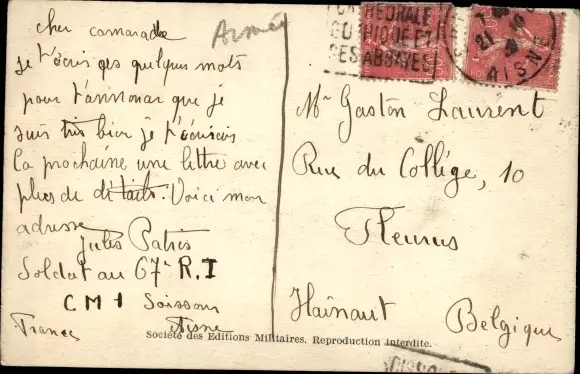 Armée
cher camarade
je t'écris ces quelques mots
pour t'annoncer que je
suis très bien je t'écrirais
la prochaine une lettre avec
plus de détails. Voici mon
adresse
Jules Patris
Soldat au 67e R.I
CM1 Soissons
Aisne
France
CATHEDRALE
GOTHIQUE ET
SES ABBAYES
AISNE
Mr Gaston Laurent
Rue du Collège, 10
Fleurus
Hainaut Belgique
Société des Editions Militaires. Reproduction interdite.